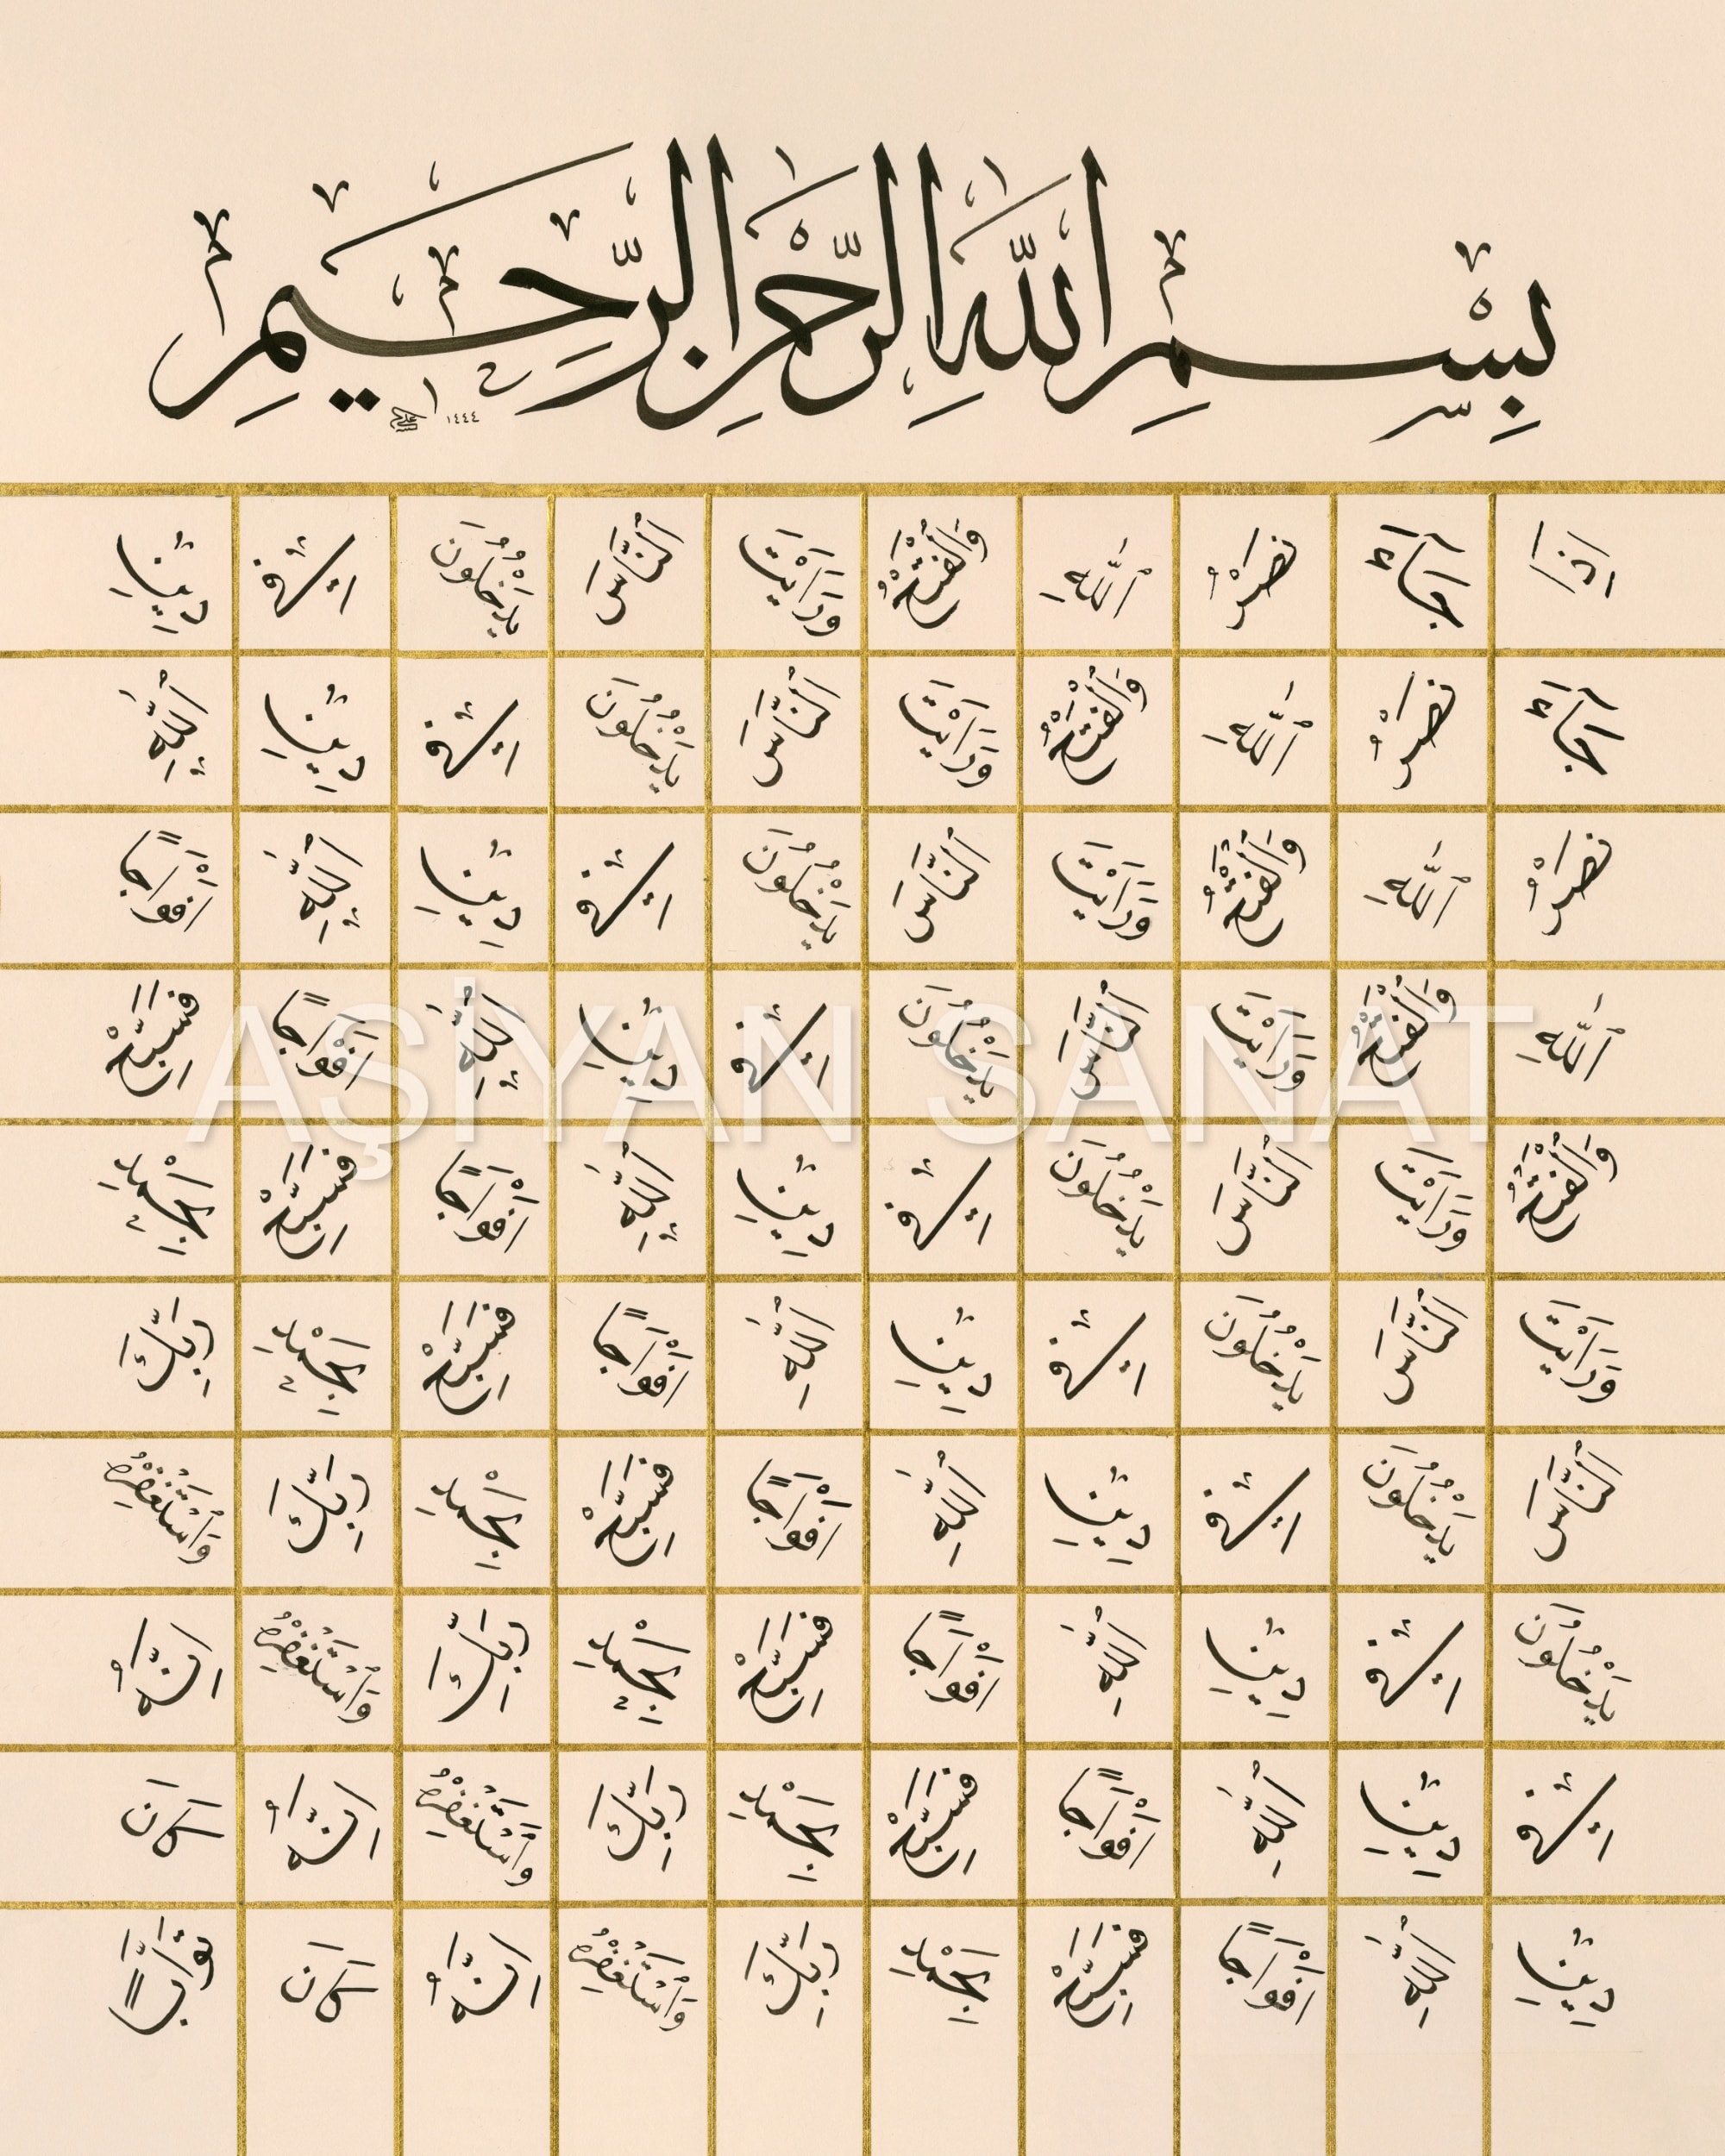 بِسْمِ اللَّهِ الرَّحْمَنِ الرَّحِيمِ
١٤٤٤
اِذَا جَٓاءَ نَصْرُ اللّٰهِ وَالْفَتْحُ وَرَاَيْتَ النَّاسَ يَدْخُلُونَ ف۪ي د۪ينِ
جَٓاءَ نَصْرُ اللّٰهِ وَالْفَتْحُ وَرَاَيْتَ النَّاسَ يَدْخُلُونَ ف۪ي د۪ينِ اللّٰهِ
نَصْرُ اللّٰهِ وَالْفَتْحُ وَرَاَيْتَ النَّاسَ يَدْخُلُونَ ف۪ي د۪ينِ اللّٰهِ اَفْوَاجًا
اللّٰهِ وَالْفَتْحُ وَرَاَيْتَ النَّاسَ يَدْخُلُونَ ف۪ي د۪ينِ اللّٰهِ اَفْوَاجًا فَسَبِّحْ
AŞİYAN SANAT
وَالْفَتْحُ وَرَاَيْتَ النَّاسَ يَدْخُلُونَ ف۪ي د۪ينِ اللّٰهِ اَفْوَاجًا فَسَبِّحْ بِحَمْدِ
وَرَاَيْتَ النَّاسَ يَدْخُلُونَ ف۪ي د۪ينِ اللّٰهِ اَفْوَاجًا فَسَبِّحْ بِحَمْدِ رَبِّكَ
النَّاسَ يَدْخُلُونَ ف۪ي د۪ينِ اللّٰهِ اَفْوَاجًا فَسَبِّحْ بِحَمْدِ رَبِّكَ وَاسْتَغْفِرْهُ
يَدْخُلُونَ ف۪ي د۪ينِ اللّٰهِ اَفْوَاجًا فَسَبِّحْ بِحَمْدِ رَبِّكَ وَاسْتَغْفِرْهُ اِنَّهُ
ف۪ي د۪ينِ اللّٰهِ اَفْوَاجًا فَسَبِّحْ بِحَمْدِ رَبِّكَ وَاسْتَغْفِرْهُ اِنَّهُ كَانَ
د۪ينِ اللّٰهِ اَفْوَاجًا فَسَبِّحْ بِحَمْدِ رَبِّكَ وَاسْتَغْفِرْهُ اِنَّهُ كَانَ تَوَّابًا